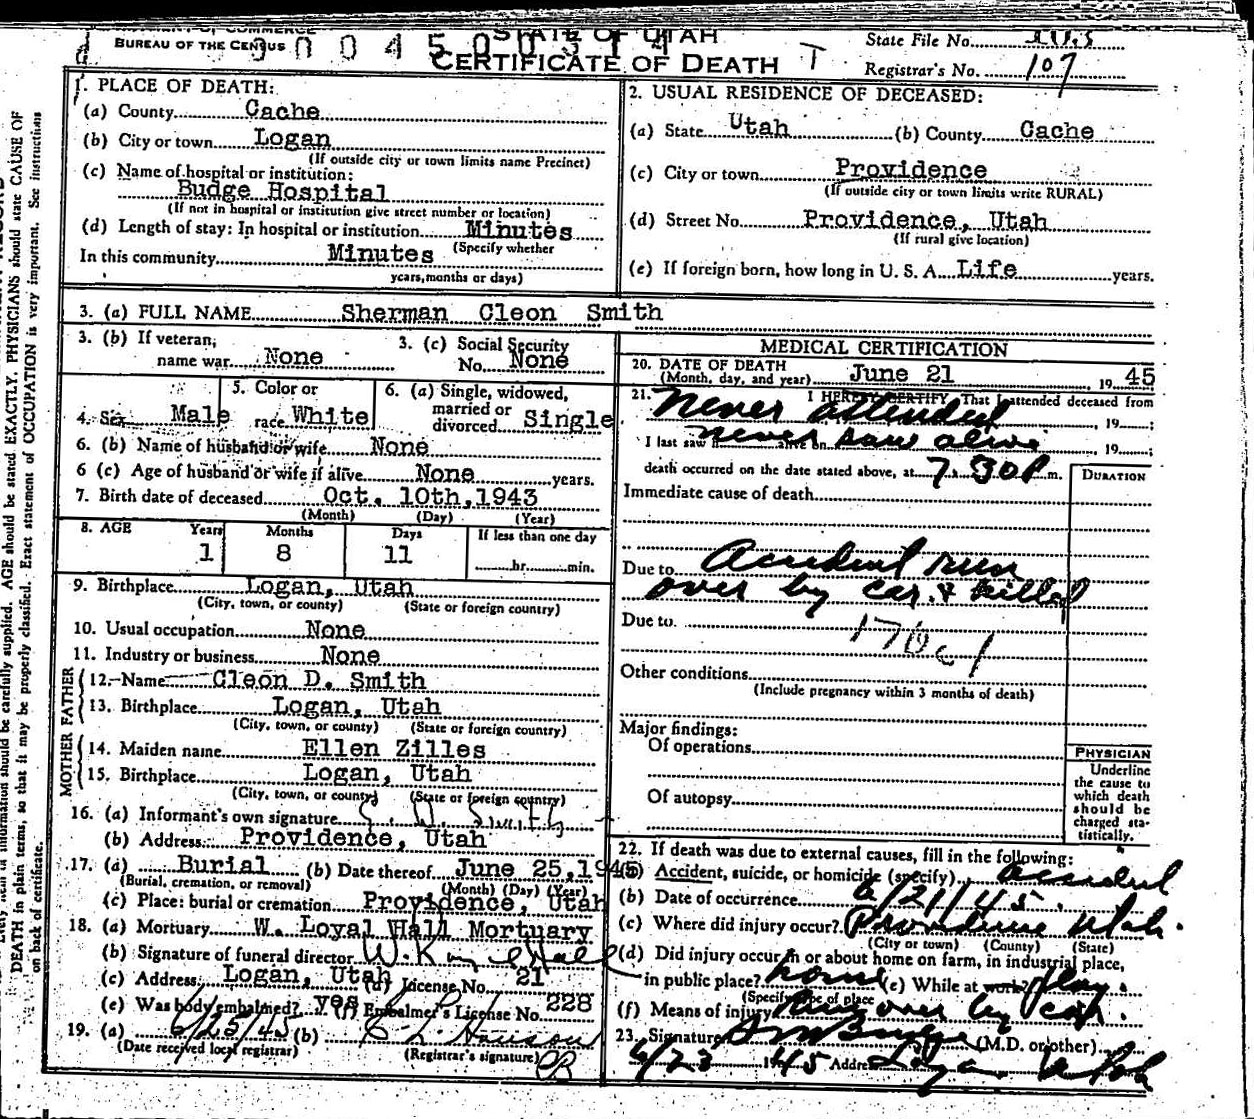 BUREAU OF THE CENSUS
STATE OF UTAH
CERTIFICATE OF DEATH
T
State File No.
Registrar's No. 107
1. PLACE OF DEATH:
(a) County Cache
(b) City or town Logan
(If outside city or town limits name Precinct)
(c) Name of hospital or institution:
Budge Hospital
(If not in hospital or institution give street number or location)
(d) Length of stay: In hospital or institution Minutes
(Specify whether
In this community Minutes
years, months or days)
2. USUAL RESIDENCE OF DECEASED:
(a) State Utah (b) County Cache
(c) City or town Providence
(If outside city or town limits write RURAL)
(d) Street No. Providence, Utah
(If rural give location)
(e) If foreign born, how long in U. S. A. Life years.
3. (a) FULL NAME Sherman Cleon Smith
3. (b) If veteran, name war None
3. (c) Social Security No. None
4. Sex Male
5. Color or race White
6. (a) Single, widowed, married or divorced Single
6. (b) Name of husband or wife None
6 (c) Age of husband or wife if alive None years.
7. Birth date of deceased Oct. 10th, 1943
(Month) (Day) (Year)
8. AGE Years Months Days If less than one day
1 8 11 hr. min.
9. Birthplace Logan, Utah
(City, town, or county) (State or foreign country)
10. Usual occupation None
11. Industry or business None
FATHER
12. Name Cleon D. Smith
13. Birthplace Logan, Utah
(City, town, or county) (State or foreign country)
MOTHER
14. Maiden name Ellen Zilles
15. Birthplace Logan, Utah
(City, town, or county) (State or foreign country)
16. (a) Informant's own signature Smith
(b) Address Providence, Utah
17. (a) Burial (b) Date thereof June 25, 1945
(Burial, cremation, or removal) (Month) (Day) (Year)
(c) Place: burial or cremation Providence, Utah
18. (a) Mortuary W. Loyal Hall Mortuary
(b) Signature of funeral director W. Hall
(c) Address Logan, Utah (d) License No. 21
(e) Was body embalmed? yes (f) Embalmer's License No. 228
19. (a) 6/25/45 (b)
(Date received local registrar) (Registrar's signature)
MEDICAL CERTIFICATION
20. DATE OF DEATH
(Month, day, and year) June 21, 1945
21. I HEREBY CERTIFY That I attended deceased from
Never attended, 19 ;
I last saw h alive on never saw alive, 19 ;
death occurred on the date stated above, at 7:30 P m.
DURATION
Immediate cause of death
Due to Accident run
over by car & killed
Due to
Other conditions
(Include pregnancy within 3 months of death)
Major findings:
Of operations
Of autopsy
PHYSICIAN
Underline
the cause to
which death
should be
charged sta-
tistically.
22. If death was due to external causes, fill in the following:
(a) Accident, suicide, or homicide (specify) accident
(b) Date of occurrence 6/21/45
(c) Where did injury occur? Providence Utah.
(City or town) (County) (State)
(d) Did injury occur in or about home on farm, in industrial place,
in public place? home (e) While at work? play.
(Specify type of place)
(f) Means of injury Run over by car.
23. Signature (M.D. or other)
6/23 1945 Address Logan Utah
AGE should be stated EXACTLY. PHYSICIANS should state CAUSE OF
DEATH in plain terms, so that it may be properly classified. Exact statement of OCCUPATION is very important. See instructions
on back of certificate.